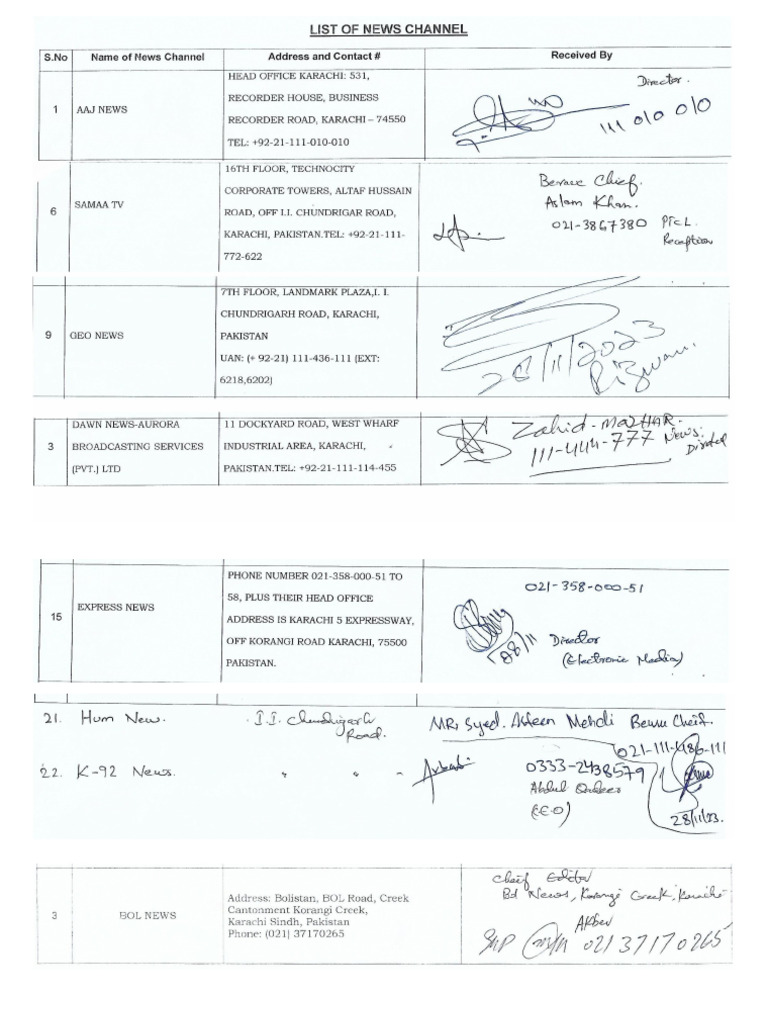 LIST OF NEWS CHANNEL
S.No Name of News Channel Address and Contact # Received By
1 AAJ NEWS
HEAD OFFICE KARACHI: 531,
RECORDER HOUSE, BUSINESS
RECORDER ROAD, KARACHI – 74550
TEL: +92-21-111-010-010
Director.
111 010 010
6 SAMAA TV
16TH FLOOR, TECHNOCITY
CORPORATE TOWERS, ALTAF HUSSAIN
ROAD, OFF I.I. CHUNDRIGAR ROAD,
KARACHI, PAKISTAN.TEL: +92-21-111-
772-622
Berraue Chief.
Aslam Khan.
021-3867380 PTCL
Reception
9 GEO NEWS
7TH FLOOR, LANDMARK PLAZA,I. I.
CHUNDRIGARH ROAD, KARACHI,
PAKISTAN
UAN: (+ 92-21) 111-436-111 (EXT:
6218,6202)
28/11/2023
Rizwan.
3
DAWN NEWS-AURORA
BROADCASTING SERVICES
(PVT.) LTD
11 DOCKYARD ROAD, WEST WHARF
INDUSTRIAL AREA, KARACHI,
PAKISTAN.TEL: +92-21-111-114-455
Zahid-MAZHAR.
111-444-777 News.
15 EXPRESS NEWS
PHONE NUMBER 021-358-000-51 TO
58, PLUS THEIR HEAD OFFICE
ADDRESS IS KARACHI 5 EXPRESSWAY,
OFF KORANGI ROAD KARACHI, 75500
PAKISTAN.
021-358-000-51
28/11
Director
(Electronic Media)
21. Hum New. I.I. Chundigarh
Road.
MR, Syed. Asfeen Mehdi Beruu Cheif.
021-111-486-111
22. K-92 News. " " "
0333-2438579
Abdul
(CEO)
28/11/23.
3 BOL NEWS
Address: Bolistan, BOL Road, Creek
Cantonment Korangi Creek,
Karachi Sindh, Pakistan
Phone: (021) 37170265
Cheif Editor
Bol News, Korangi Creek, Karachi
Akber
021 37170265